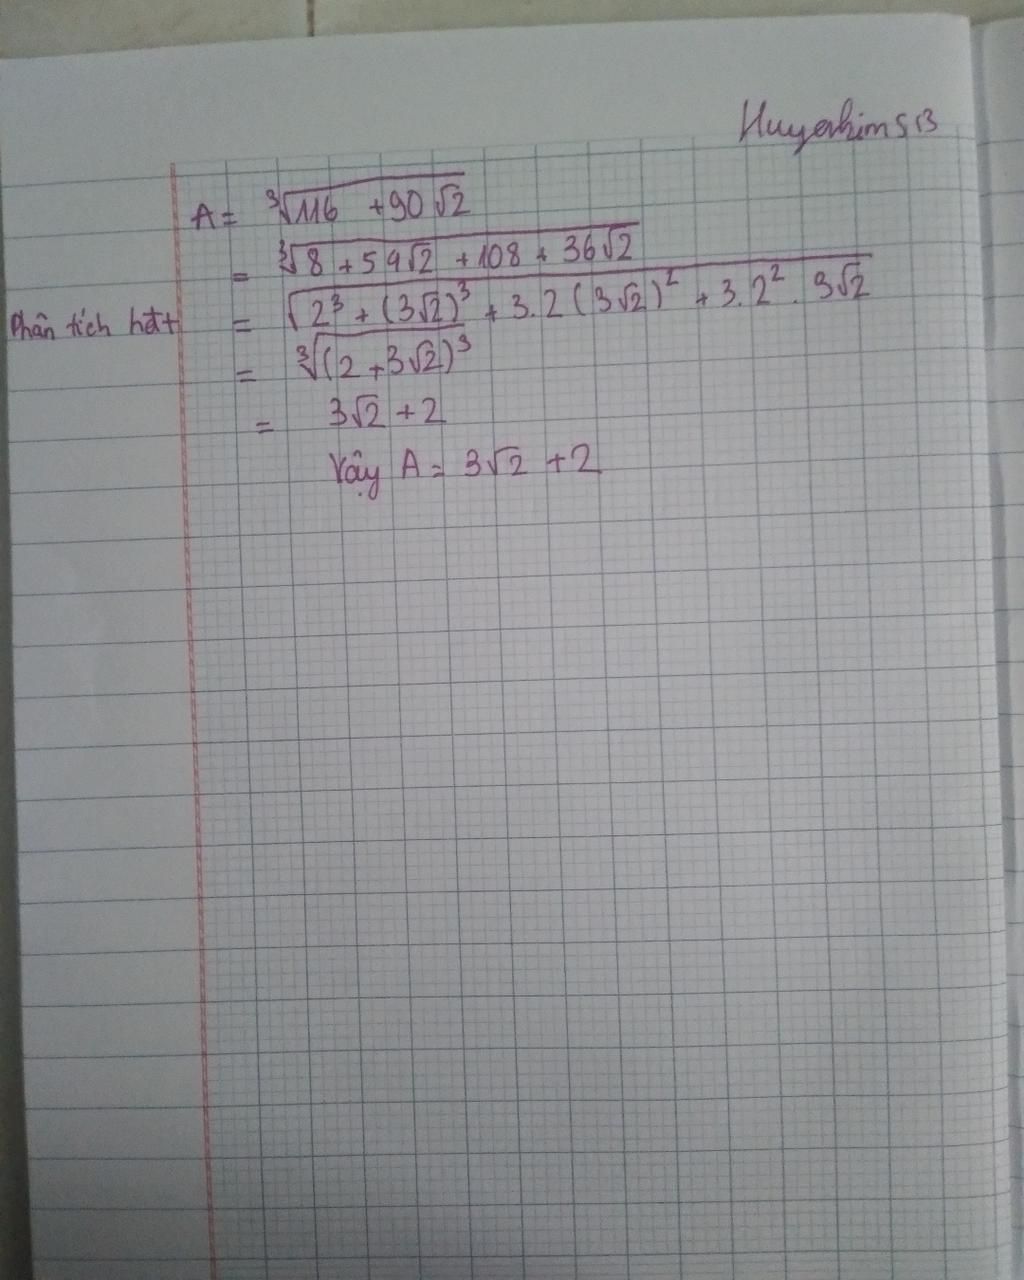 Huyenhim5B
A = ∛(116 + 90√2)
= ∛(8 + 54√2 + 108 + 36√2)
Phân tích hết = √(2³ + (3√2)³ + 3.2(3√2)² + 3.2².3√2)
= ∛((2 + 3√2)³)
= 3√2 + 2
Vậy A = 3√2 + 2